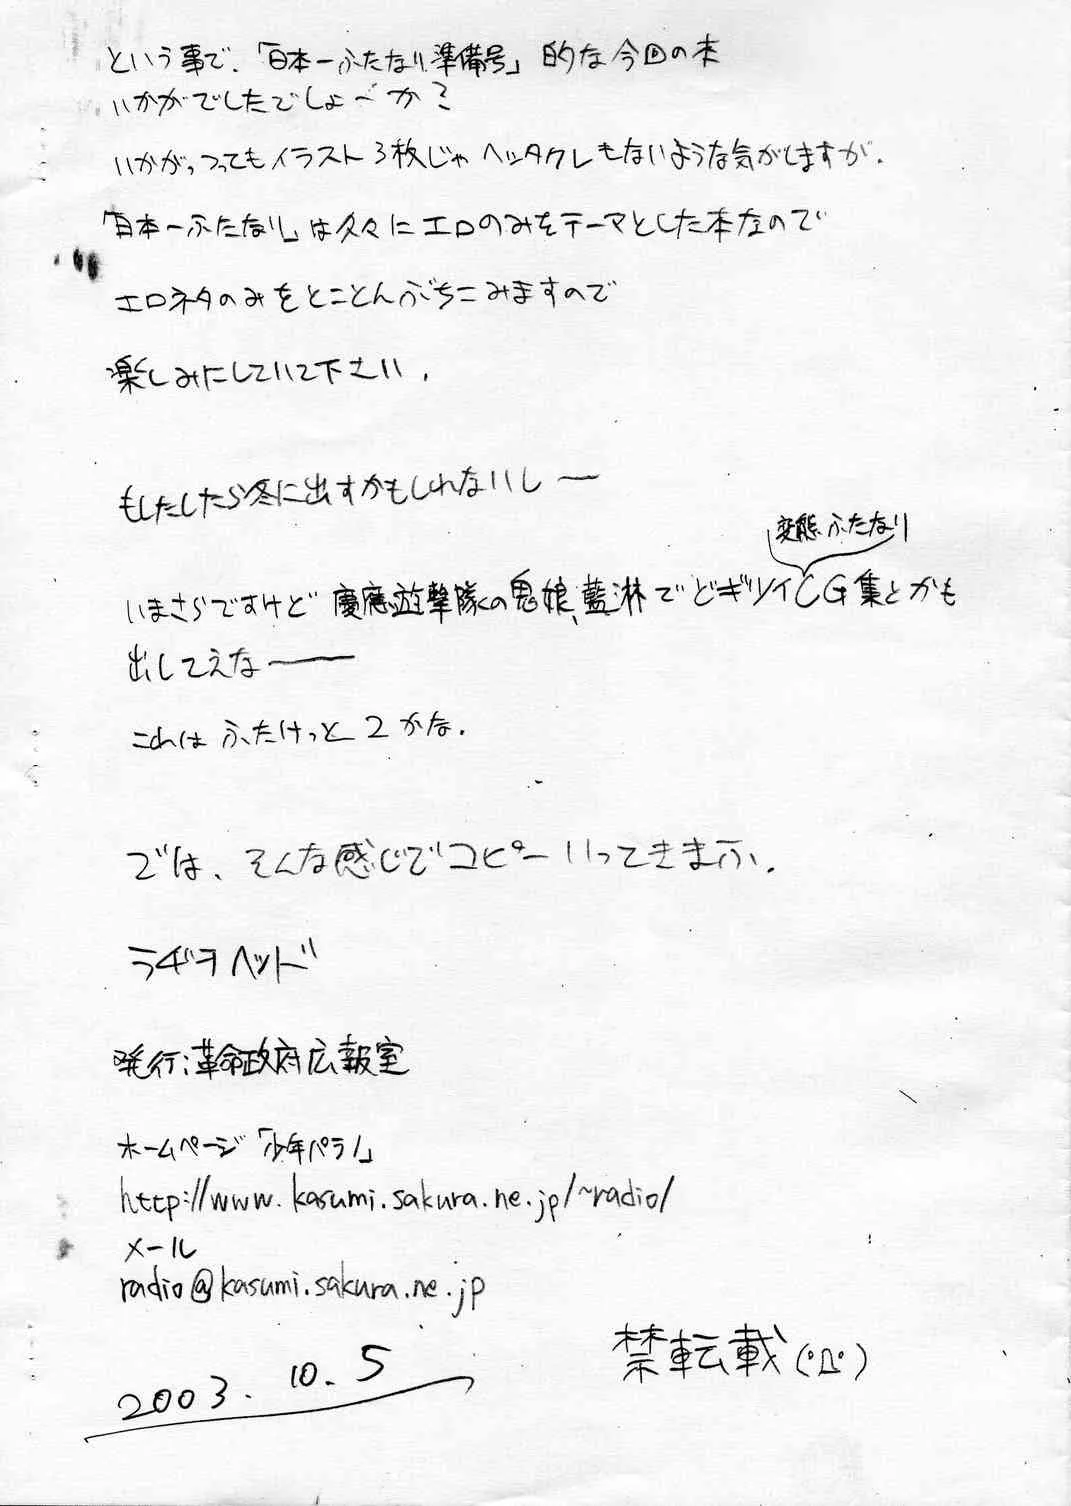 という事で、「日本一ふたなり準備号」的な今回の本
いかがでしたでしょーか?
いかがっつってもイラスト3枚じゃヘッタクレもないような気がしますが.
「日本一ふたなり」は久々にエロのみをテーマとした本なので
エロネタのみをとことんぶちこみますので
楽しみにしていて下さい.
もしたしたら冬に出すかもしれないし―
変態ふたなり
いまさらですけど慶應遊撃隊の鬼娘、藍淋でどギツイCG集とかも
出してえな――
これはふたけっと2かな.
では、そんな感じでコピーいってきまふ.
ラヂヲヘッド
発行:革命政府広報室
ホームページ「少年パラノ」
http://www.kasumi.sakura.ne.jp/~radio/
メール
radio@kasumi.sakura.ne.jp
禁転載(゚Д゚)
2003.10.5